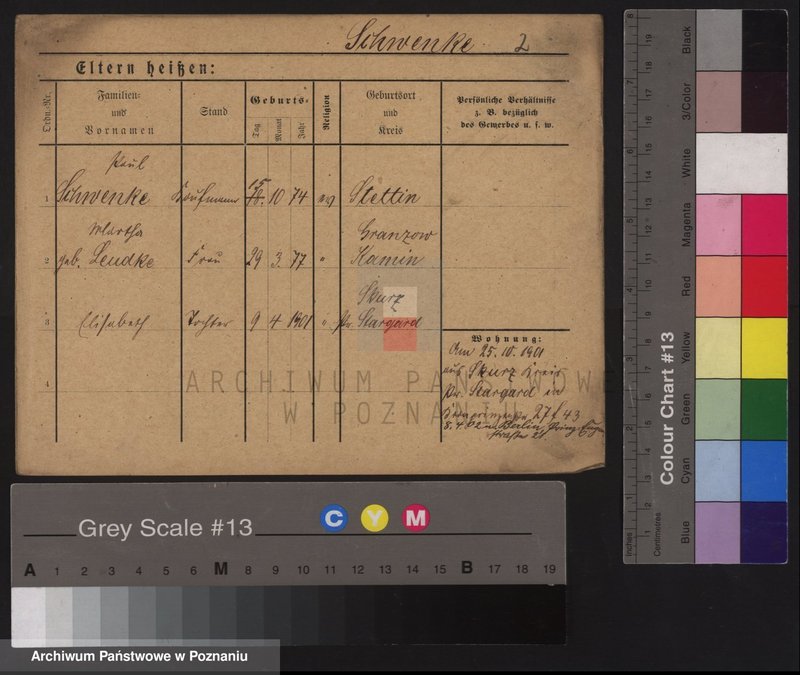 Schwenke 2
Eltern heißen:
Ordn.-Nr.
Familien-
und
Vornamen
Stand
Geburts-
Tag
Monat
Jahr
Religion
Geburtsort
und
Kreis
Persönliche Verhältnisse
z. B. bezüglich
des Gewerbes u. s. w.
Paul
1 Schwenke Kaufmann 15 10 74 ev Stettin
Martha Granzow
2 geb. Leudke Frau 29 3. 77 " Kamin
Skurz
3 Elisabeth Tochter 9 4 1901 " Pr. Stargard
4
Wohnung:
Am 25. 10. 1901
aus Skurz Kreis
Pr. Stargard in
27 43
8. 4. 02 n. Berlin, Prinz Eugen
straße 21
ARCHIWUM PAŃSTWOWE
W POZNANIU
Grey Scale #13
C Y M
A 1 2 3 4 5 6 M 8 9 10 11 12 13 14 15 B 17 18 19
Archiwum Państwowe w Poznaniu
Colour Chart #13
Black
3/Color
White
Magenta
Red
Yellow
Green
Cyan
Blue
Inches
Centimetres